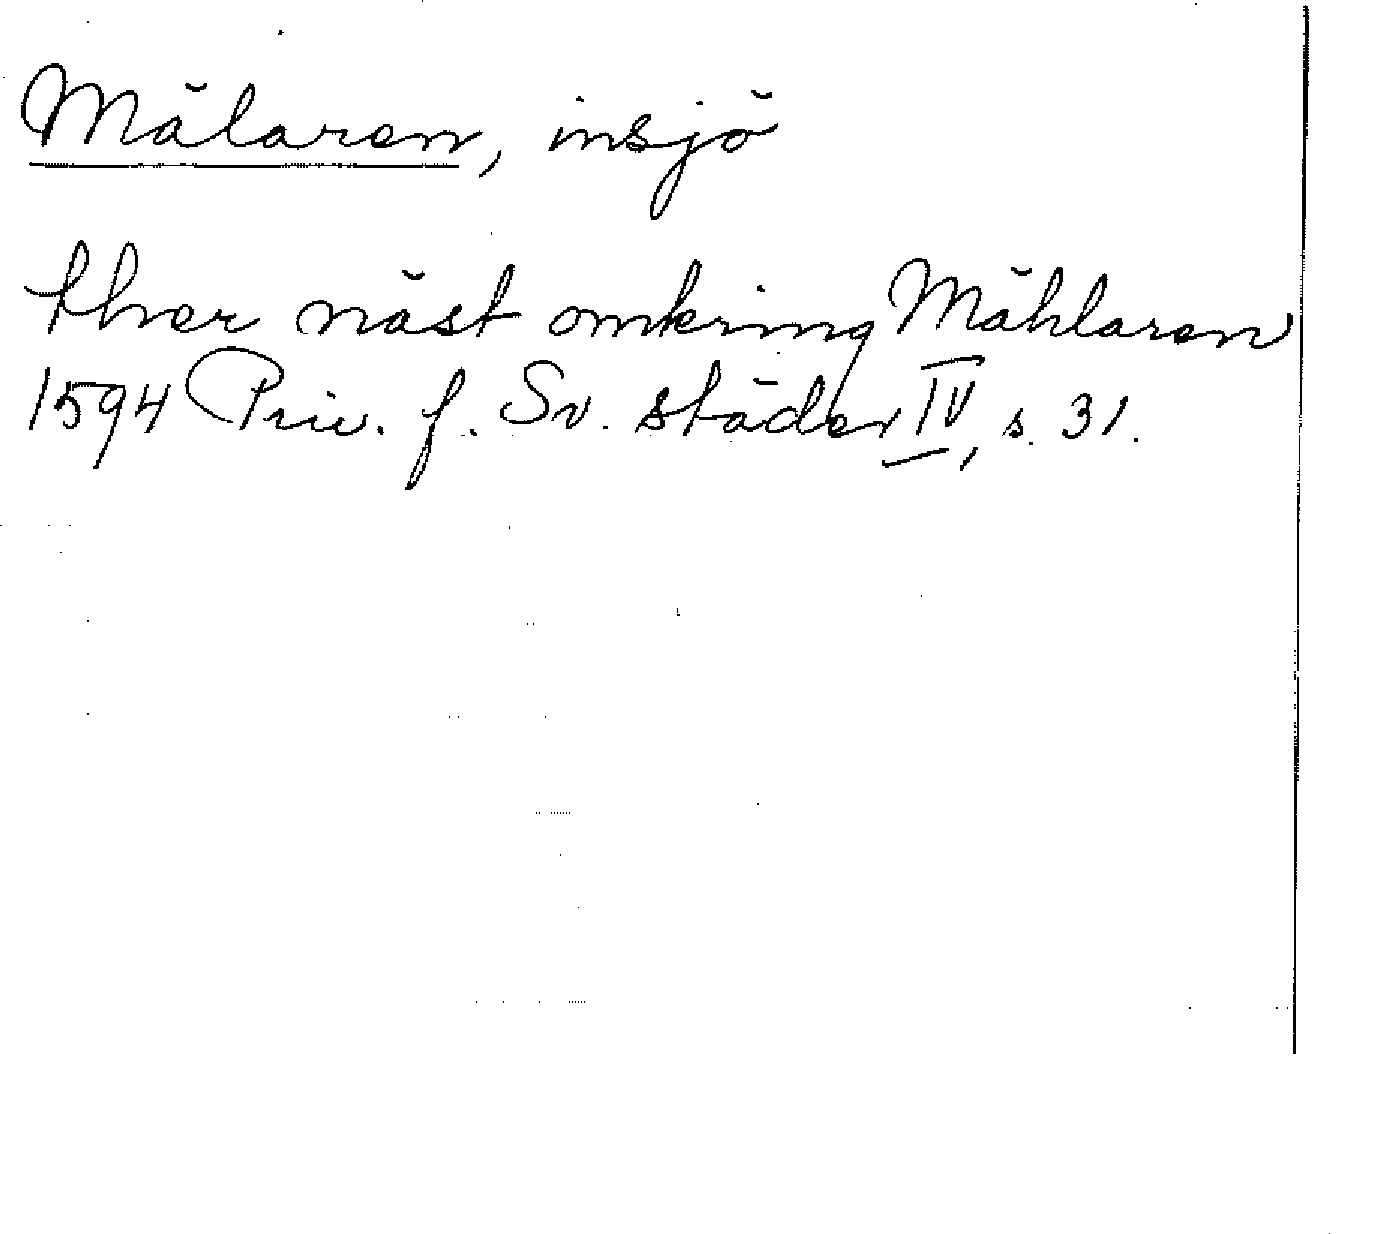 Mälaren, insjö
thver näst omkring Mählaren
1594 Priv. f. Sv. städer IV, s. 31.